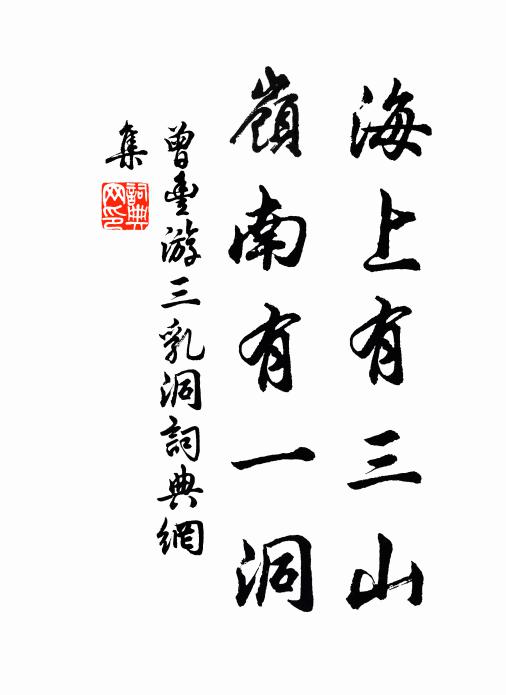 海上有三山
嶺南有一洞
曾豊游三乳洞詞典網
集
詞典
网印